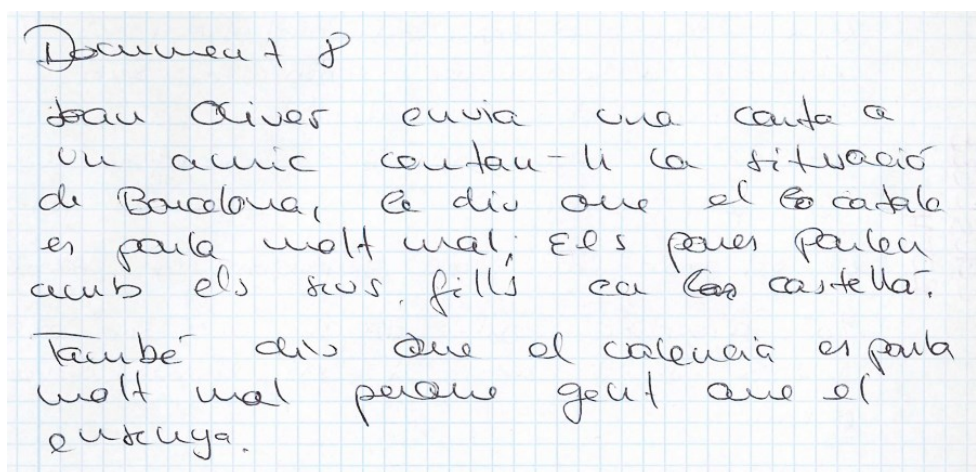 Document 8
Joan Oliver envia una carta a
un amic contan-li la situació
de Barcelona, le diu que el catala
es parla molt mal; Els pares parlen
amb els seus fills en castellà.
També diu que el valencià es parla
molt mal perque gent que el
ensenya.